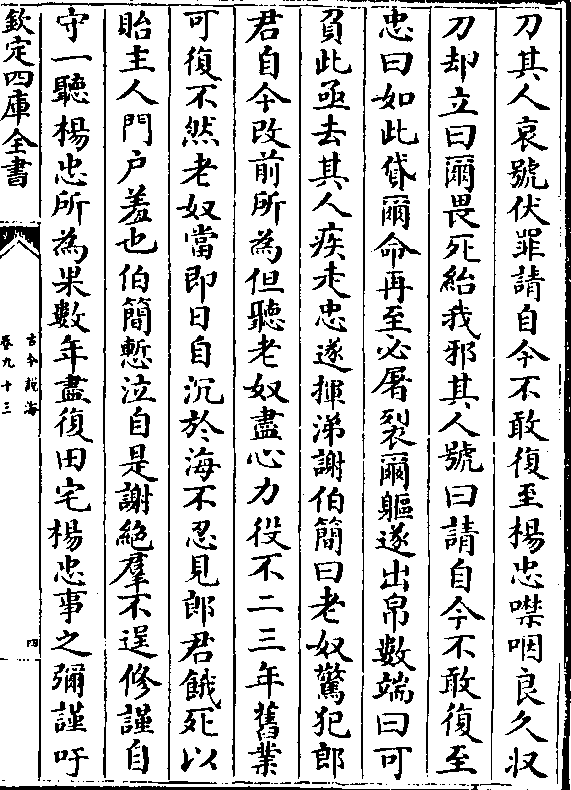 刀其人哀號伏罪請自今不敢復至楊忠噤咽良久収
刀却立曰爾畏死紿我邪其人號曰請自今不敢復至
忠曰如此貸爾命再至必屠裂爾軀遂出帛數端曰可
負此亟去其人疾走忠遂揮涕謝伯簡曰老奴驚犯郎
君自今改前所為但聽老奴盡心力役不二三年舊業
可復不然老奴當即日自沉於海不忍見郎君餓死以
貽主人門户羞也伯簡慙泣自是謝絶羣不逞修謹自
守一聽楊忠所為果數年盡復田宅楊忠事之彌謹吁
欽定四庫全書
古今說海
卷九十三
四